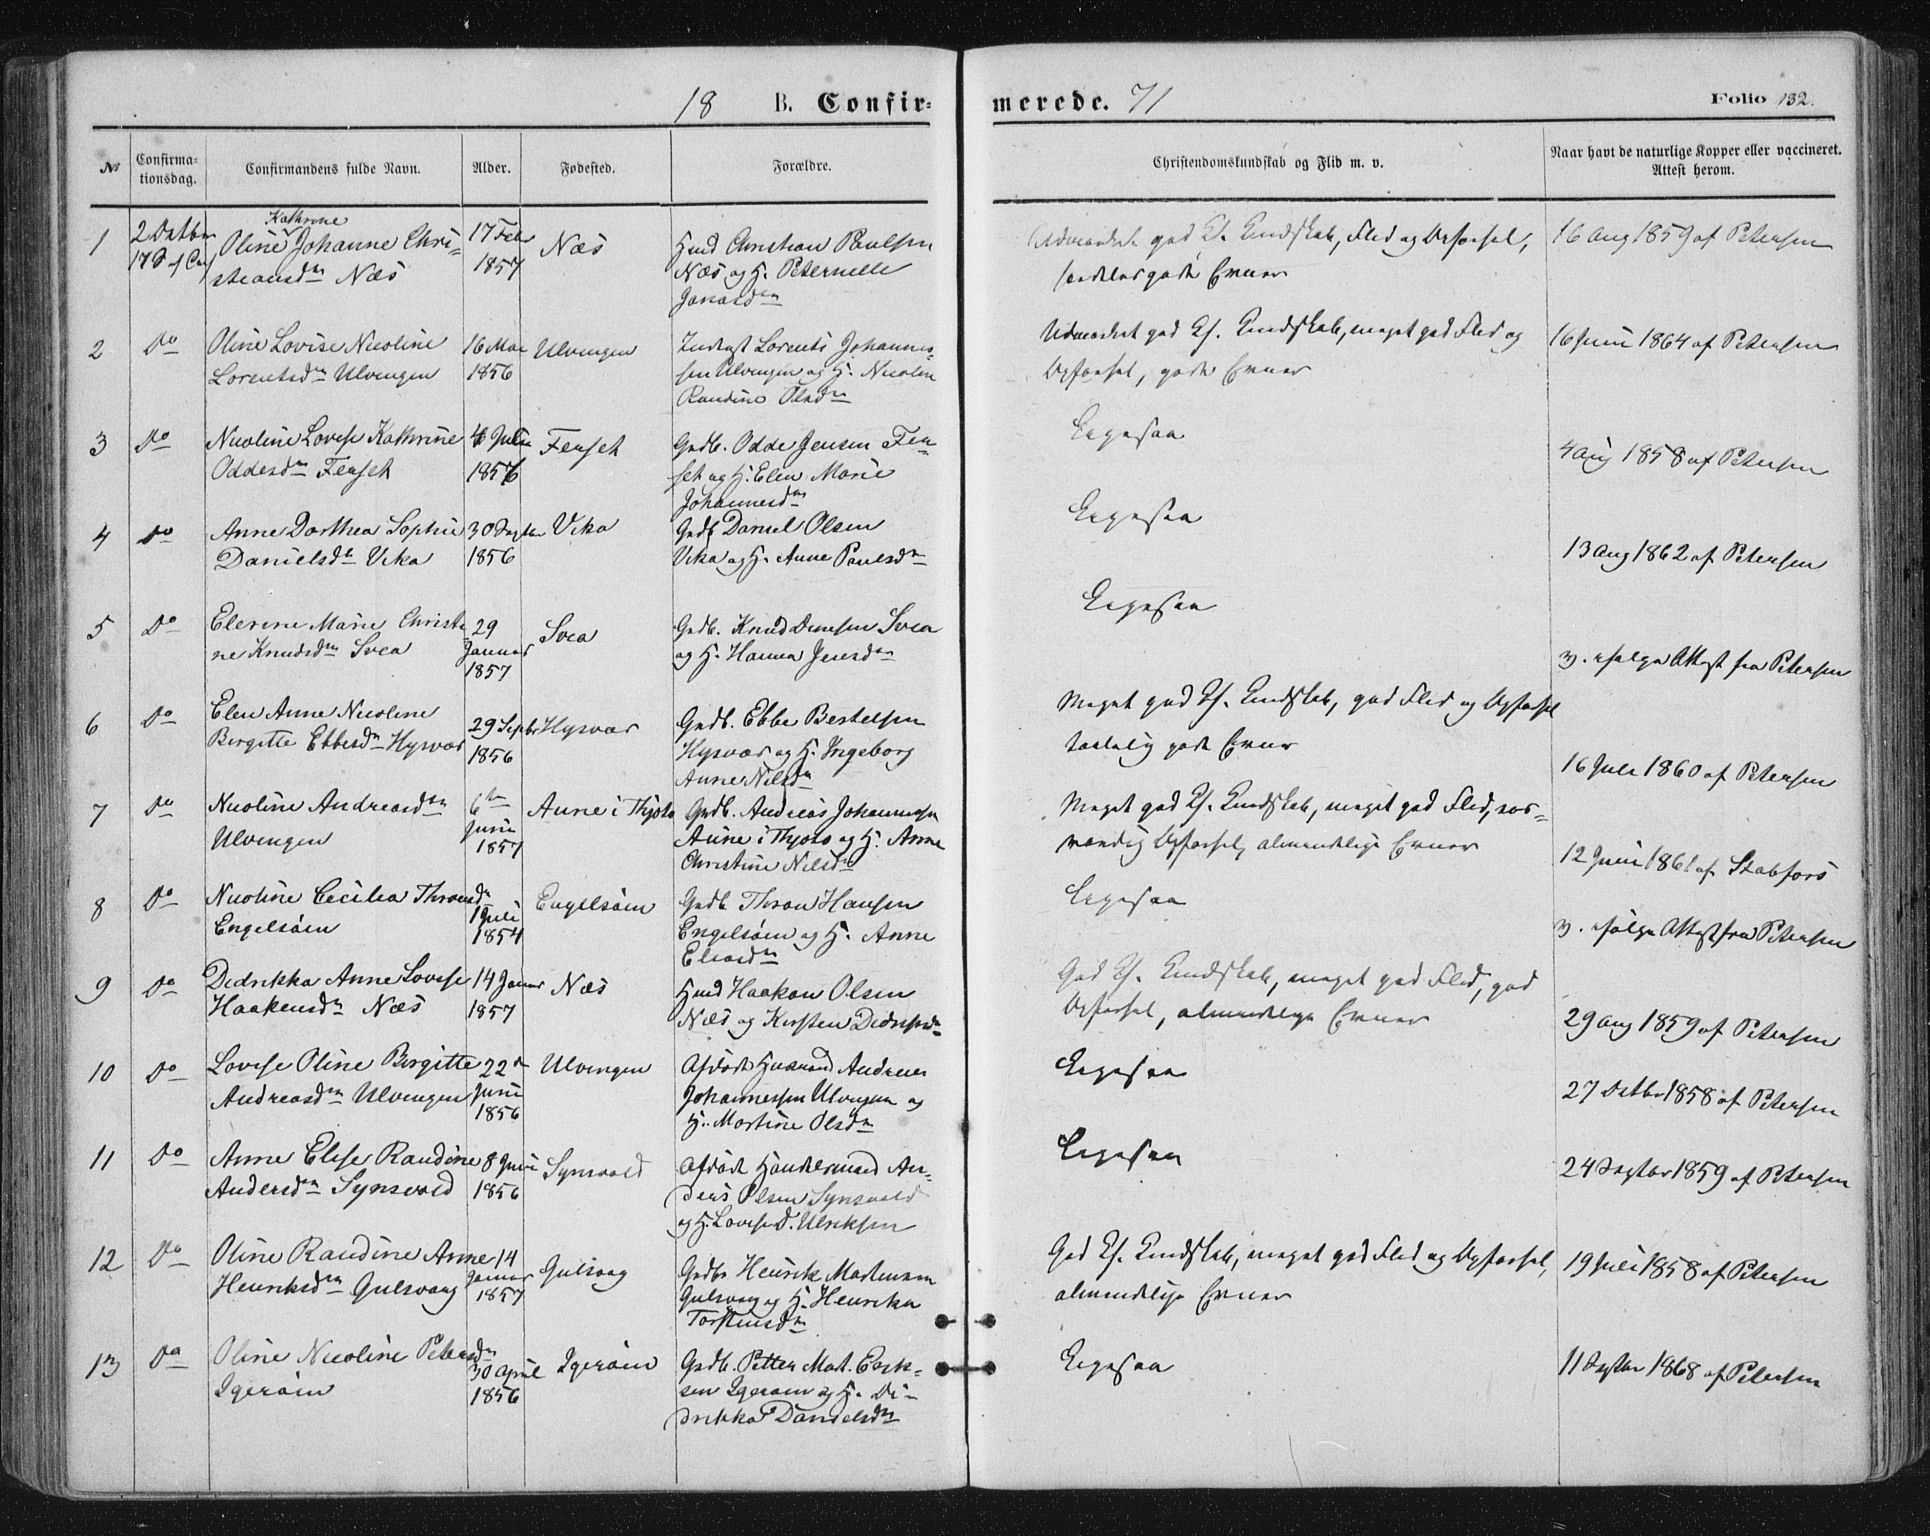 18 B. Confirmerede. 71
Folio 132.
№ Confirmationsdag. Confirmandens fulde Navn. Alder. Fødested. Forældre. Christendomskundskab og Flid m. v. Naar havt de naturlige Kopper eller vaccineret. Attest herom.
1 2 Octbr 17 S.
Kathrine
Oline Johanne Chri-
stiansdn Næs
17 Febr
1857
Næs
Hmd Christian Paulsen
Næs og H. Peternelle
Jonasdn
Udmærket god Ch. Kundskab, Flid og Opførsel,
særdeles gode Evner
16 Aug 1859 af Petersen
2 Do
Oline Lovise Nicoline
Lorentsdn Ulvengen
16 Mai
1856
Ulvengen
Inderst Lorents Johannes-
sen Ulvengen og H. Nicoline
Randine Olsdn
Udmærket god Ch. Kundskab, meget god Flid og
Opførsel, gode Evner
16 Juni 1864 af Petersen
3 Do
Nicoline Lovise Kathrine
Oddesdn Ferset
Juli
1856
Ferset
Grdb. Odde Jensen Fer-
set og H. Elen Marie
Johannesdn
Ligesaa
4 Aug 1858 af Petersen
4 Do
Anne Dorthea Sophie
Danielsdt Vika
30 Septbr
1856
Vika
Grdb Daniel Olsen
Vika og H. Anne Paulsdn
Ligesaa
13 Aug 1862 af Petersen
5 Do
Elerine Marie Christi-
ne Knudsdn Svea
29
Januar
1857
Svea
Grdb. Knud Svea
og H. Hanna Jensdn
Ligesaa
v. ifølge Attest fra Petersen
6 Do
Elen Anne Nicoline
Birgitte Ebbesdn Hysvær
29 Septbr
1856
Hysvær
Grdb. Ebbe Bertelsen
Hysvær og H. Ingeborg
Anne Nilsdn
Meget god Ch. Kundskab, god Flid og Opførsel
taalelig gode Evner
16 Juli 1860 af Petersen
7 Do
Nicoline Andreasdtn
Ulvengen
6te
Juni
1857
Aune i Thjøtø
Grdb. Andreas Johannesen
Aune i Thjøtø og H. Anne
Christine Nilsdn
Meget god Ch. Kundskab, meget god Flid, sæd-
vanlig Opførsel, almindelige Evner
12 Juni 1861 af Stabfors
8 Do
Nicoline Cecilia Thronsdn
Engelsøen
1 Juli
1854
Engelsøen
Grdb Thron Hansen
Engelsøen og H. Anne
Eliasdn
Ligesaa
v. ifølge Attest fra Petersen
9 Do
Didrikka Anne Lovise
Haakensdn Næs
14 Januar
1857
Næs
Hmd Haakon Olsen
Næs og Kirsten Didriksdn
God Ch. Kundskab, meget god Flid, god
Opførsel, almindelige Evner
29 Aug 1859 af Petersen
10 Do
Lovise Oline Birgitte
Andreasdn Ulvengen
22de
Juni
1856
Ulvengen
Afdøde Husmand Andreas
Johannessen Ulvengen og
H. Martine Olsdn
Ligesaa
27 Octbr 1858 af Petersen
11 Do
Anne Elise Randine
Andersdn Synsvold
8 Juni
1856
Synsvold
Afdøde Handelsmand An-
ders Olsen Synsvold
og H. Lovise D. Ulriksen
Ligesaa
24 Septbr 1859 af Petersen
12 Do
Oline Randine Anne
Henriksdn Gulsvaag
14
Januar
1857
Gulsvaag
Grdbr Henrik Mortensen
Gulsvaag og H. Henrika
Torstensdn
God Ch. Kundskab, meget god Flid og Opførsel,
almindelige Evner
19 Juli 1858 af Petersen
13 Do
Oline Nicoline Petersdn
Igerøen
30 April
1856
Igerøen
Grdb. Petter Mat. Erik-
sen Igerøen og H. Di-
drikka Danielsdn
Ligesaa
11 Septbr 1868 af Petersen